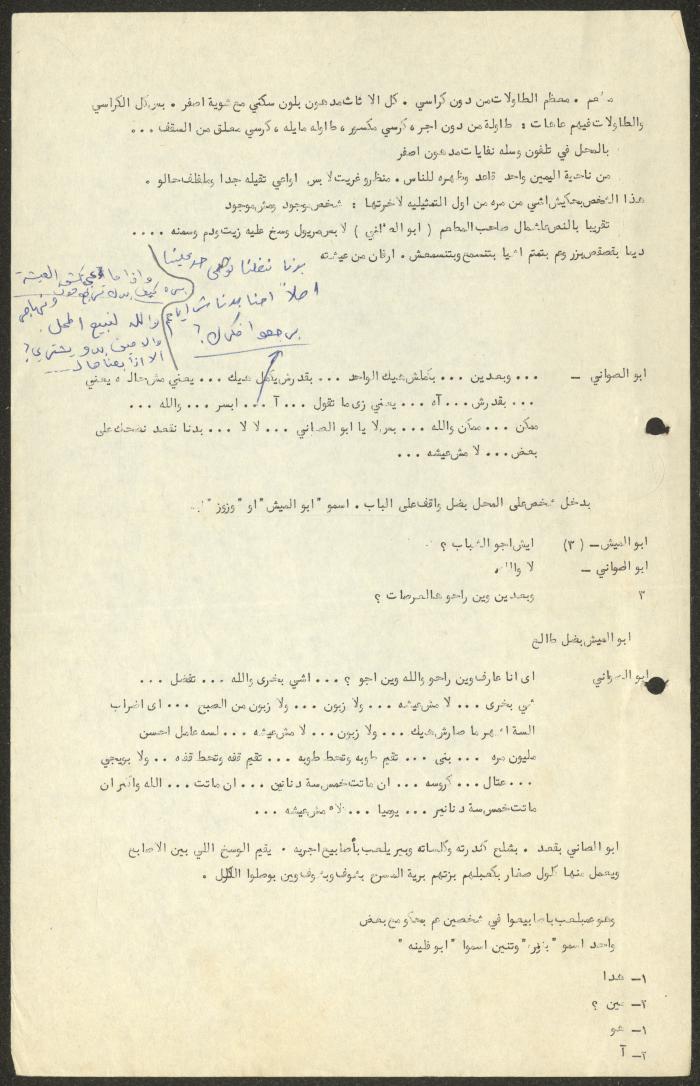 معظم الطاولات من دون كراسي . كل الاثاث مدهون بلون سكني مع شوية اصفر . بس كل الكراسي
والطاولات فيهم عاهات : طاولة من دون اجر ، كرسي مكسور ، طاوله مايله ، كرسي معلق من السقف ...
بالمحل في تلفون وسله نفايات مدهون اصفر
من ناحية اليمين واحد قاعد وظهره للناس . منظرو غريت لابس اواعي ثقيله جدا وملفلف حالو .
هذا الشخص بحكيش اشي من مره من اول التمثيليه لاخرتها : شخص موجود ومش موجود
تقريبا بالنص عشمال صاحب المطعم ( ابو الصاني ) لابس مريول وسخ عليه زيت ودم وسمنه ....
ديما بقصقص بزر وعم بتمتم اشيا بتنسمع وبتنسمعش . ارفان من عيشته
بدنا نضلنا نوطي حد علينا
اصلاً احنا بدنا
بس كيف بدك
والله لنبيع المحل
والا مين بدو يشتري ؟
الا اذا بعنا حالنا ...
برجعوا فكرك ؟
ابو الصواني — ... وبعدين ... بكملش هيك الواحد ... بقدرش يكمل هيك ... يعني مش حاله يعني
... بقدرش ... آه ... يعني زى ما تقول ... آ ... ابسر ... والله ...
ممكن ... ممكن والله ... بس لا يا ابو الصاني ... لا لا ... بدنا نقعد نضحك على
بعض ... لا مش عيشه ...
بدخل شخص على المحل بضل واقف على الباب . اسمو " ابو الميش " او " وزوز "
ابو الميش — (٣) ايش اجو الشباب ؟
ابو الصواني — لا والله
٣ وبعدين وين راحو هالعرصات ؟
ابو الميش بضل طالع
ابو الصواني اى انا عارف وين راحو والله وين اجو ؟ ... اشي بخرى والله ... تفضل ...
شي بخرى ... لا مش عيشه ... ولا زبون ... ولا زبون من الصبح ... اى اضراب
الستة اشهر ما صارش هيك ... ولا زبون ... لا مش عيشه ... لسه عامل احسن
مليون مره ... بنى ... تقيم طوبه وتحط طوبه ... تقيم قفه وتحط قفه .. ولا بويجي
... عتال ... كروسه ... ان ماتت خمس ستة دنانير ... ان ماتت ... الله واكبر ان
ماتت خمس ستة دنانير ... يوميا ... لاه مش عيشه ...
ابو الصاني بقعد . بشلح كندرته وكلساته وبصير يلعب بأصابيع اجريه . يقيم الوسخ اللي بين الاصابع
ويعمل منها كلول صغار بكعبلهم بزتهم برية المسرح بشوف وبشوف وين بوصلوا الكلول .
وهو عمبلعب باصابيعوا في شخصين عم بحكو مع بعض
واحد اسمو وتنين اسموا " ابو فلينه "
١- هدا
٢- مين ؟
١- هو
٢- آ